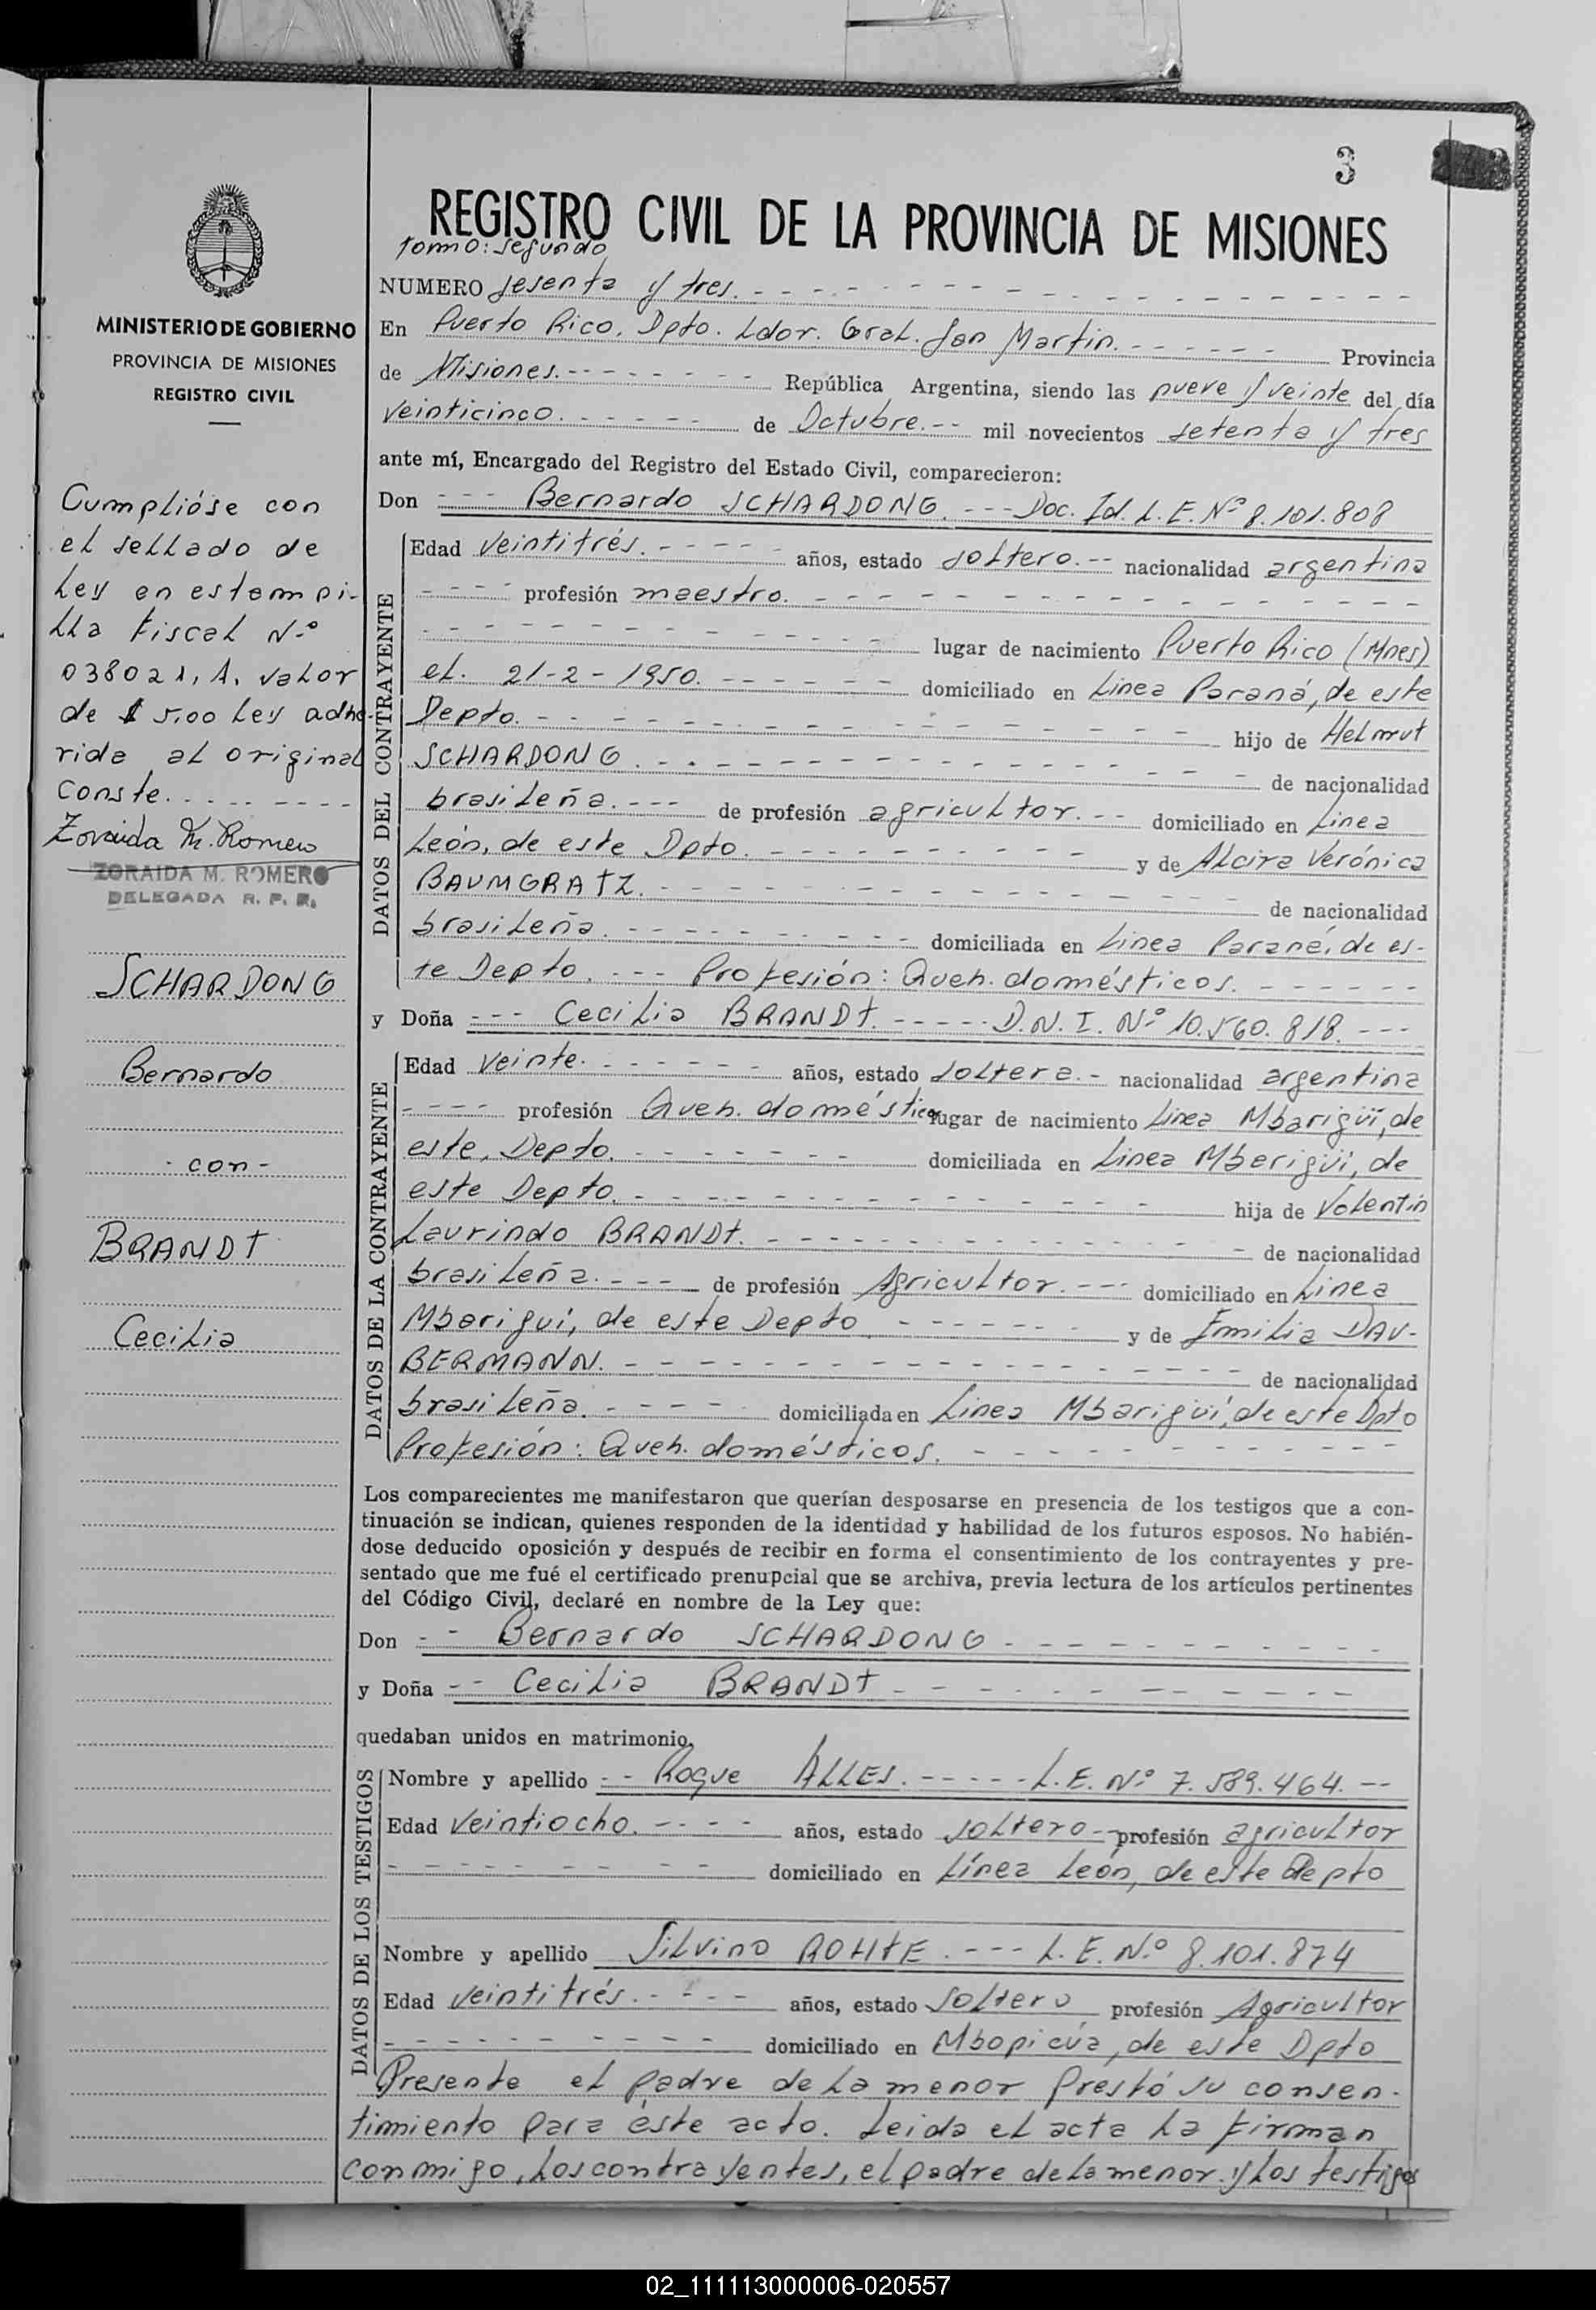 3
REGISTRO CIVIL DE LA PROVINCIA DE MISIONES
tomo: segundo
NUMERO sesenta y tres.
En Puerto Rico. Dpto. Ldor. Gral. San Martin. Provincia
de Misiones. República Argentina, siendo las nueve y veinte del día
veinticinco. de Octubre. mil novecientos setenta y tres
ante mí, Encargado del Registro del Estado Civil, comparecieron:
Don Bernardo SCHARDONG. Doc. Id. L. E. Nº 8.101.808
DATOS DEL CONTRAYENTE
Edad veintitrés. años, estado soltero. nacionalidad argentina
profesión maestro.
lugar de nacimiento Puerto Rico (Mnes)
el. 21-2-1950. domiciliado en Linea Paraná, de este
Depto. hijo de Helmut
SCHARDONG. de nacionalidad
brasileña. de profesión agricultor. domiciliado en Linea
León, de este Dpto. y de Alcira Verónica
BAUMGRATZ. de nacionalidad
brasileña. domiciliada en Linea Paraná, de es-
te Depto. Profesión: Queh. domésticos.
y Doña Cecilia BRANDT. D. N. I. Nº 10.560.818.
DATOS DE LA CONTRAYENTE
Edad veinte. años, estado soltera. nacionalidad argentina
profesión Queh. domésticos lugar de nacimiento Linea Mbarigüí, de
este, Depto. domiciliada en Linea Mbarigüí, de
este Depto. hija de Valentín
Laurindo BRANDT. de nacionalidad
brasileña. de profesión Agricultor. domiciliado en Linea
Mbariguí, de este Depto. y de Emilia DAU-
BERMANN. de nacionalidad
brasileña. domiciliada en Linea Mbarigüí, de este Dpto
Profesión: Queh. domésticos.
Los comparecientes me manifestaron que querían desposarse en presencia de los testigos que a con-
tinuación se indican, quienes responden de la identidad y habilidad de los futuros esposos. No habién-
dose deducido oposición y después de recibir en forma el consentimiento de los contrayentes y pre-
sentado que me fué el certificado prenupcial que se archiva, previa lectura de los artículos pertinentes
del Código Civil, declaré en nombre de la Ley que:
Don Bernardo SCHARDONG
y Doña Cecilia BRANDT
quedaban unidos en matrimonio.
DATOS DE LOS TESTIGOS
Nombre y apellido Roque ALLES. L. E. Nº 7.589.464.
Edad veintiocho. años, estado soltero profesión agricultor
domiciliado en Línea León, de este Depto
Nombre y apellido Silvino ROHTE. L. E. Nº 8.101.874
Edad veintitrés. años, estado soltero profesión Agricultor
domiciliado en Mbopicúa, de este Dpto
Presente el padre de la menor Prestó su consen-
timiento para éste acto. Leida el acta la firman
conmigo, los contrayentes, el padre de la menor y los testigos
MINISTERIO DE GOBIERNO
PROVINCIA DE MISIONES
REGISTRO CIVIL
Cumplióse con
el sellado de
Ley en estampi-
lla fiscal Nº
038021, A, valor
de $ 5,00 Ley adhe-
rida al original
Conste.
Zoraida M. Romero
ZORAIDA M. ROMERO
DELEGADA R. P. R.
SCHARDONG
Bernardo
- con -
BRANDT
Cecilia
02_111113000006-020557